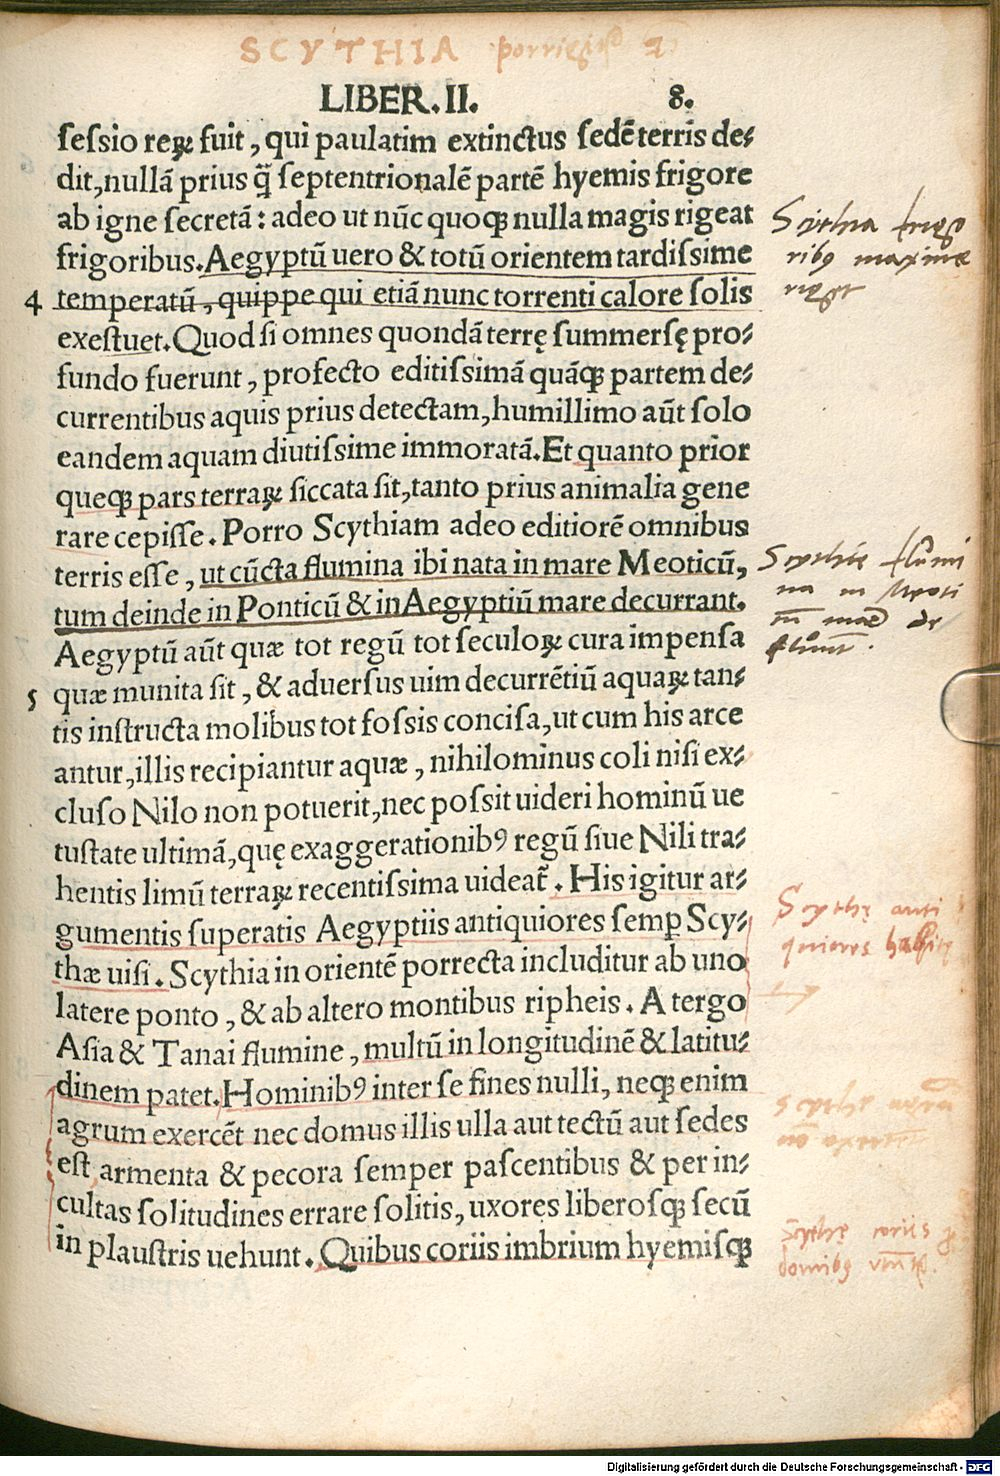 SCYTHIA porrigit
LIBER. II. 8.
ſeſsio reꝝ fuit, qui paulatim extinctus ſedē terris de⸗
dit, nullā prius q̃ ſeptentrionalē partē hyemis frigore
ab igne ſecretā: adeo ut nūc quoqꝫ nulla magis rigeat
frigoribus. Aegyptū uero & totū orientem tardiſsime
4 temperatū, quippe qui etiā nunc torrenti calore ſolis
exeſtuet. Quod ſi omnes quondā terrę ſummerſę pro⸗
fundo fuerunt, profecto editiſsimā quāqꝫ partem de⸗
currentibus aquis prius detectam, humillimo aūt ſolo
eandem aquam diutiſsime immoratā. Et quanto prior
queqꝫ pars terraꝝ ſiccata ſit, tanto prius animalia gene
rare cepiſſe. Porro Scythiam adeo editiorē omnibus
terris eſſe, ut cūcta flumina ibi nata in mare Meoticū,
tum deinde in Ponticū & in Aegyptiū mare decurrant.
Aegyptū aūt quæ tot regū tot ſeculoꝝ cura impenſa
5 quæ munita ſit, & aduerſus uim decurrētiū aquaꝝ tan⸗
tis inſtructa molibus tot foſsis conciſa, ut cum his arce
antur, illis recipiantur aquæ, nihilominus coli niſi ex⸗
cluſo Nilo non potuerit, nec poſsit uideri hominū ue
tuſtate ultimā, quę exaggerationibꝰ regū ſiue Nili tra⸗
hentis limū terraꝝ recentiſsima uideat̃. His igitur ar⸗
gumentis ſuperatis Aegyptiis antiquiores ſemꝑ Scy⸗
thæ uiſi. Scythia in orientē porrecta includitur ab uno
latere ponto, & ab altero montibus ripheis. A tergo
Aſia & Tanai flumine, multū in longitudinē & latitu⸗
dinem patet. Hominibꝰ inter ſe fines nulli, neqꝫ enim
agrum exercēt nec domus illis ulla aut tectū aut ſedes
eſt armenta & pecora ſemper paſcentibus & per in⸗
cultas ſolitudines errare ſolitis, uxores liberoſqꝫ ſecū
in plauſtris uehunt. Quibus coriis imbrium hyemiſqꝫ
Scithia frigo
ribꝰ maxime
riget
Scythię flumi
na in Meoti
cū mare de
fluunt.
Scythę anti
quiores
Scythę agrū
nō exercēt
Scythę coriis p
domibꝰ
Digitalisierung gefördert durch die Deutsche Forschungsgemeinschaft - DFG